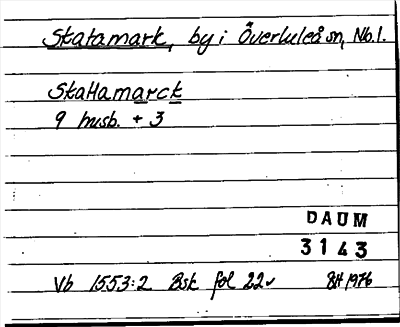 Skatamark, by i Överluleå sn, Nb.l.
Skattamarck
9 husb. + 3
DAUM
3143
Vb 1553:2 Bsk fol 22v BH 1976